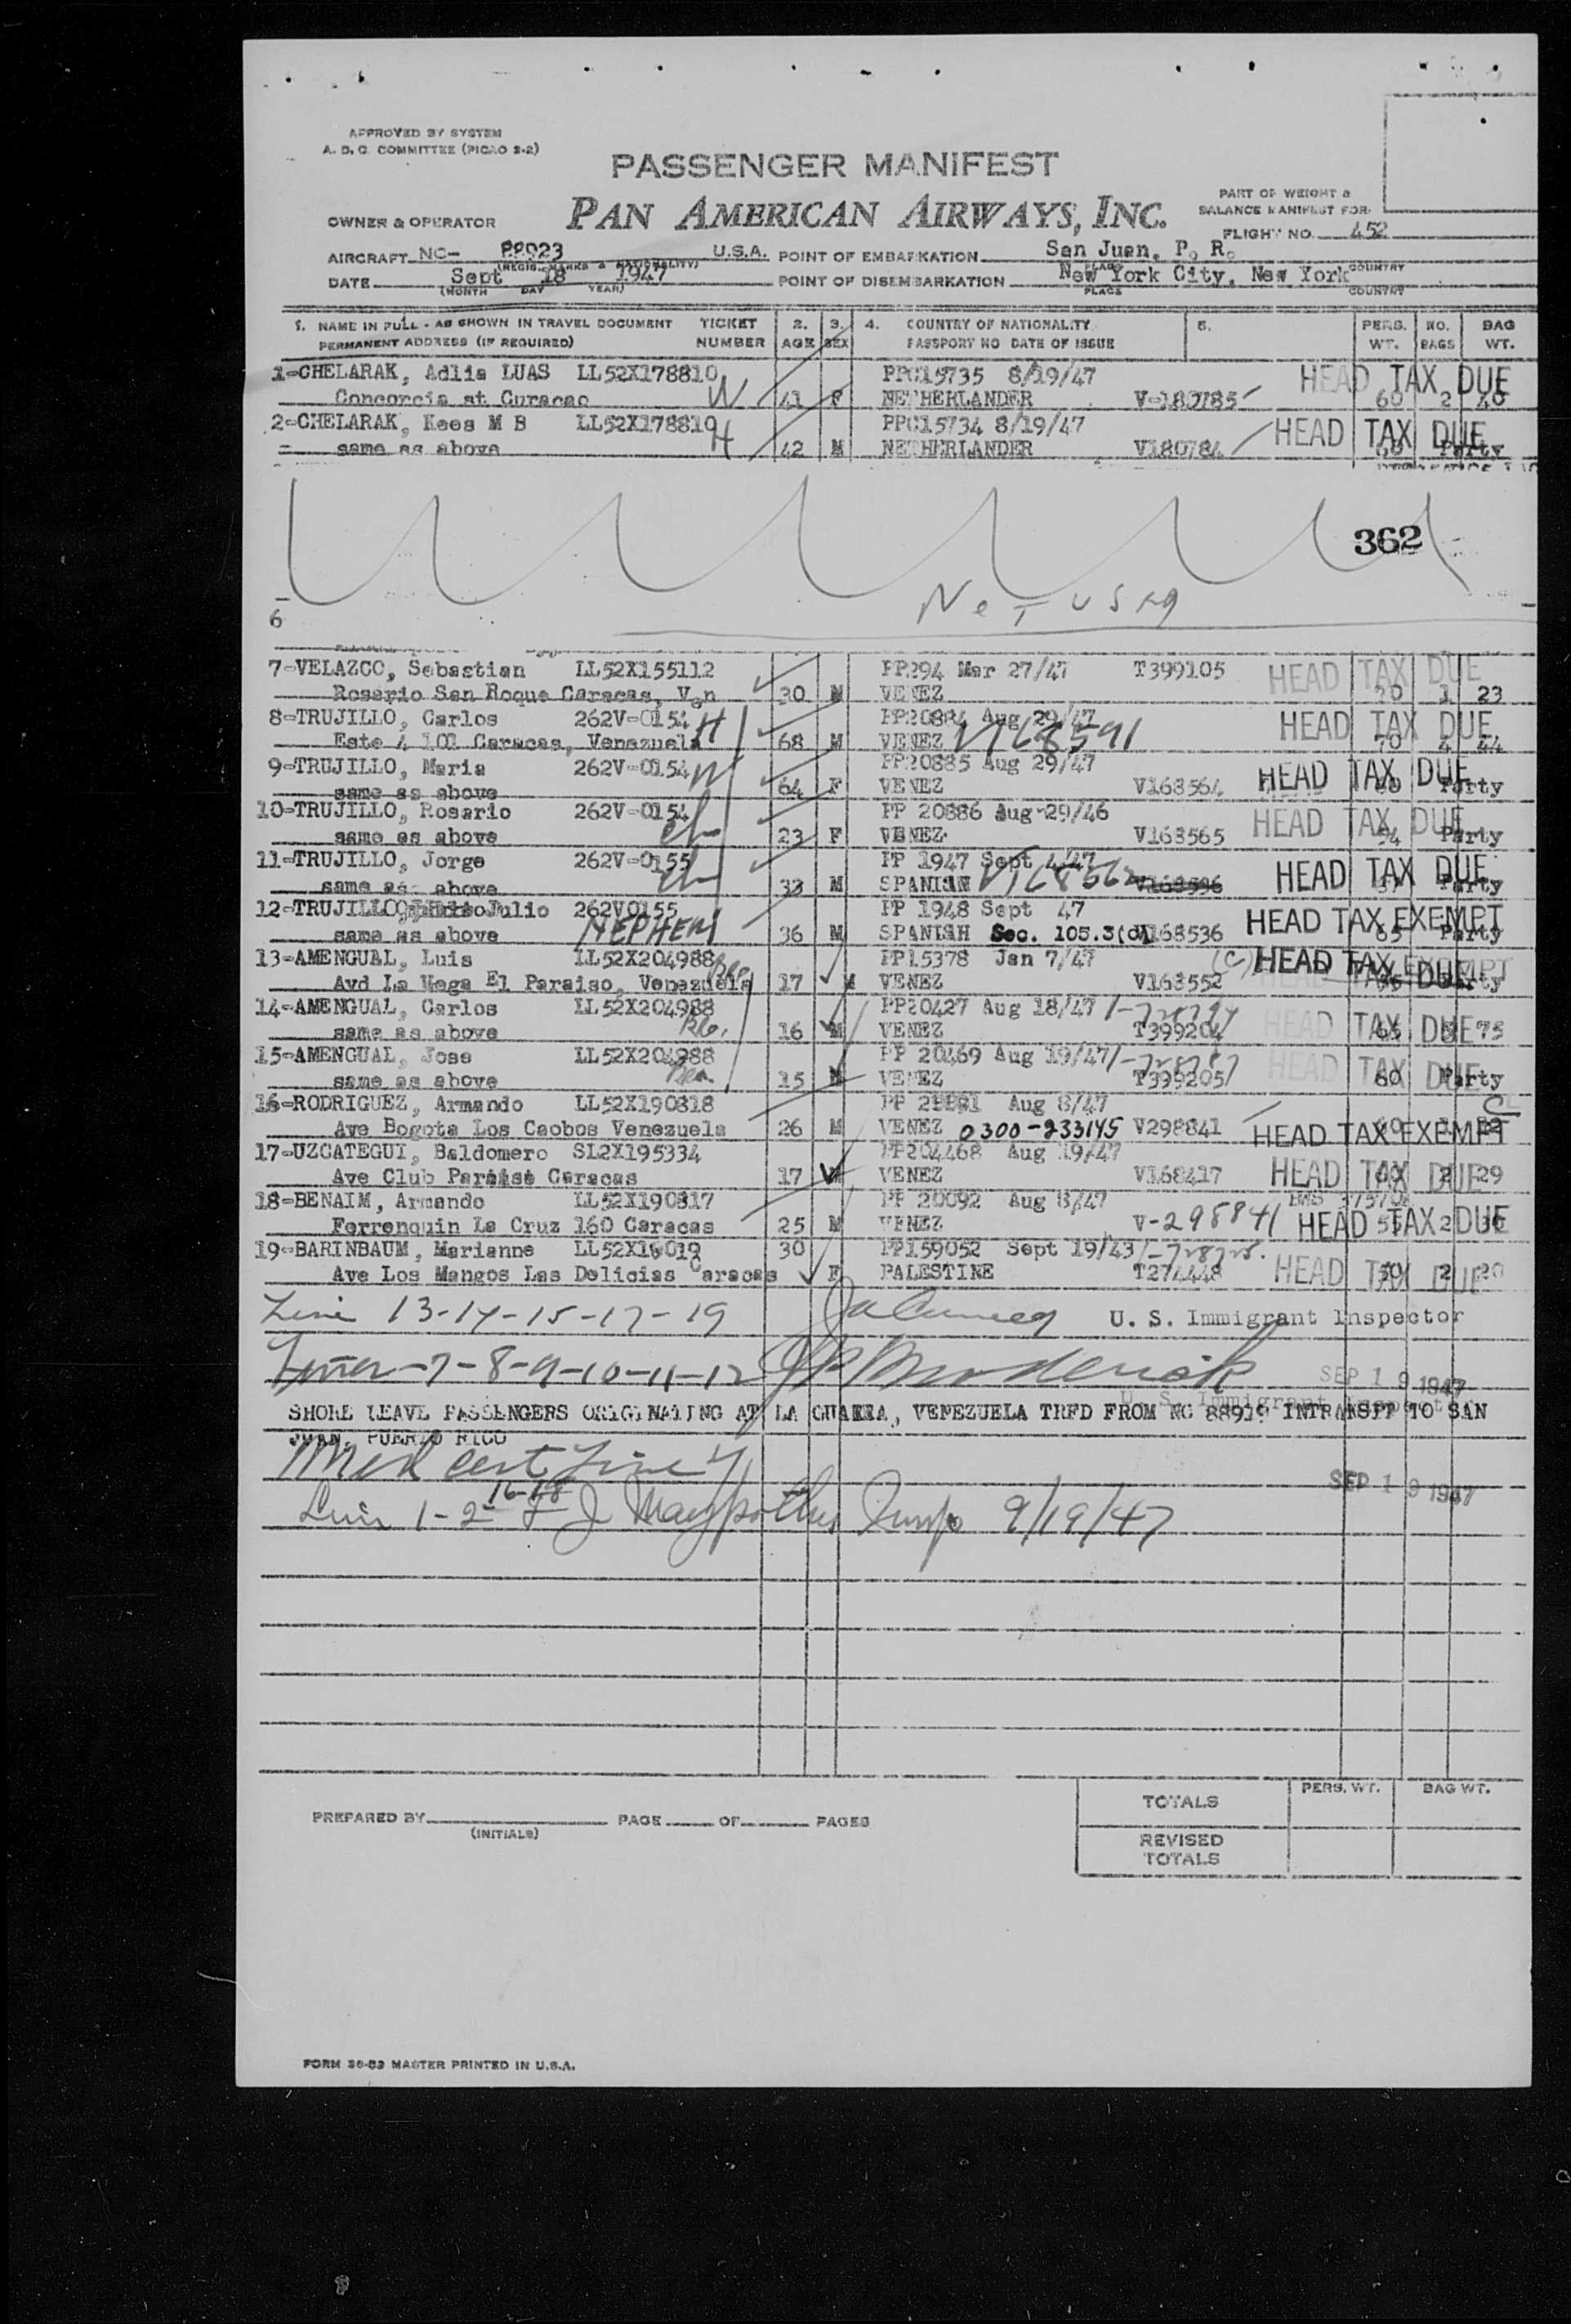 APPROVED BY SYSTEM
A. D. C. COMMITTEE (PICAO 2-2)
PASSENGER MANIFEST
PART OF WEIGHT &
BALANCE MANIFEST FOR:
OWNER & OPERATOR PAN AMERICAN AIRWAYS, INC.
FLIGHT NO. 452
AIRCRAFT NC- U.S.A. POINT OF EMBARKATION San Juan, P. R.
(REGIS. MARKS & NATIONALITY) PLACE COUNTRY
DATE Sept 18 1947 POINT OF DISEMBARKATION New York City, New York
(MONTH DAY YEAR) PLACE COUNTRY
1. NAME IN FULL - AS SHOWN IN TRAVEL DOCUMENT TICKET 2. 3. 4. COUNTRY OF NATIONALITY 5. PERS. NO. BAG
PERMANENT ADDRESS (IF REQUIRED) NUMBER AGE SEX PASSPORT NO DATE OF ISSUE WT. BAGS WT.
1-CHELARAK, Adlia LUAS LL52X178810 PPC15735 8/19/47 HEAD TAX DUE
Concorcia st Curacao W 41 F NETHERLANDER V-180785 60 2 40
2-CHELARAK, Kees M B LL52X178810 PPC15734 8/19/47 HEAD TAX DUE
same as above H 42 M NETHERLANDER V180784 Party
362
Not used
6
7-VELAZCO, Sebastian LL52X155112 PP294 Mar 27/47 T399105 HEAD TAX DUE
Rosario San Roque Caracas, Ven 30 M VENEZ 1 23
8-TRUJILLO, Carlos 262V-0154 H PP20884 Aug 29/47 HEAD TAX DUE
Este 4 101 Caracas, Venezuela 68 M VENEZ V168591 70 4 44
9-TRUJILLO, Maria 262V-0154 W PP20885 Aug 29/47
same as above 64 F VENEZ V168564 HEAD TAX DUE Party
10-TRUJILLO, Rosario 262V-0154 PP 20886 Aug 29/46
same as above ch 23 F VENEZ V168565 HEAD TAX DUE Party
11-TRUJILLO, Jorge 262V-0155 PP 1947 Sept 4/47
same as above ch 33 M SPANISH HEAD TAX DUE Party
12-TRUJILLO Julio 262V0155 PP 1948 Sept 47
same as above NEPHEW 36 M SPANISH Sec. 105.3(c) V168536 HEAD TAX EXEMPT 65 Party
13-AMENGUAL, Luis LL52X204988 PP15378 Jan 7/47 (C) HEAD TAX EXEMPT
Avd La Vega El Paraiso, Venezuela Bro. 17 M VENEZ V168552 TAX DUE Party
14-AMENGUAL, Carlos LL52X204988 PP20427 Aug 18/47
same as above Bro. 16 M VENEZ T399204 HEAD TAX DUE 65 75
15-AMENGUAL, Jose LL52X204988 PP 20469 Aug 19/47
same as above Bro. 15 M VENEZ T399205 HEAD TAX DUE 60 Party
16-RODRIGUEZ, Armando LL52X190818 PP Aug 8/47
Ave Bogota Los Caobos Venezuela 26 M VENEZ 0300-233145 V298841 HEAD TAX EXEMPT
17-UZCATEGUI, Baldomero SL2X195334 PP204468 Aug 19/47
Ave Club Paraiso Caracas 17 M VENEZ V168417 HEAD TAX DUE 29
18-BENAIM, Armando LL52X190817 PP 20092 Aug 8/47
Ferrenquin La Cruz 160 Caracas 25 M VENEZ V-298841 HEAD TAX DUE 2
19-BARINBAUM, Marianne 30 PP159052 Sept 19/43
Ave Los Mangos Las Delicias Caracas F PALESTINE HEAD TAX DUE 2 20
Line 13-14-15-17-19 U. S. Immigrant Inspector
Lines-7-8-9-10-11-12 JP Broderick SEP 19 1947
U. S. Immigrant Inspector
SHORE LEAVE PASSENGERS ORIGINATING AT LA GUAIRA, VENEZUELA TRFD FROM NC 88919 INTRANSIT TO SAN
JUAN, PUERTO RICO
Med cert Line
SEP 19 1947
16-18
1-2 9/19/47
PERS. WT. BAG WT.
TOTALS
PREPARED BY PAGE OF PAGES
(INITIALS)
REVISED
TOTALS
FORM 36-83 MASTER PRINTED IN U.S.A.